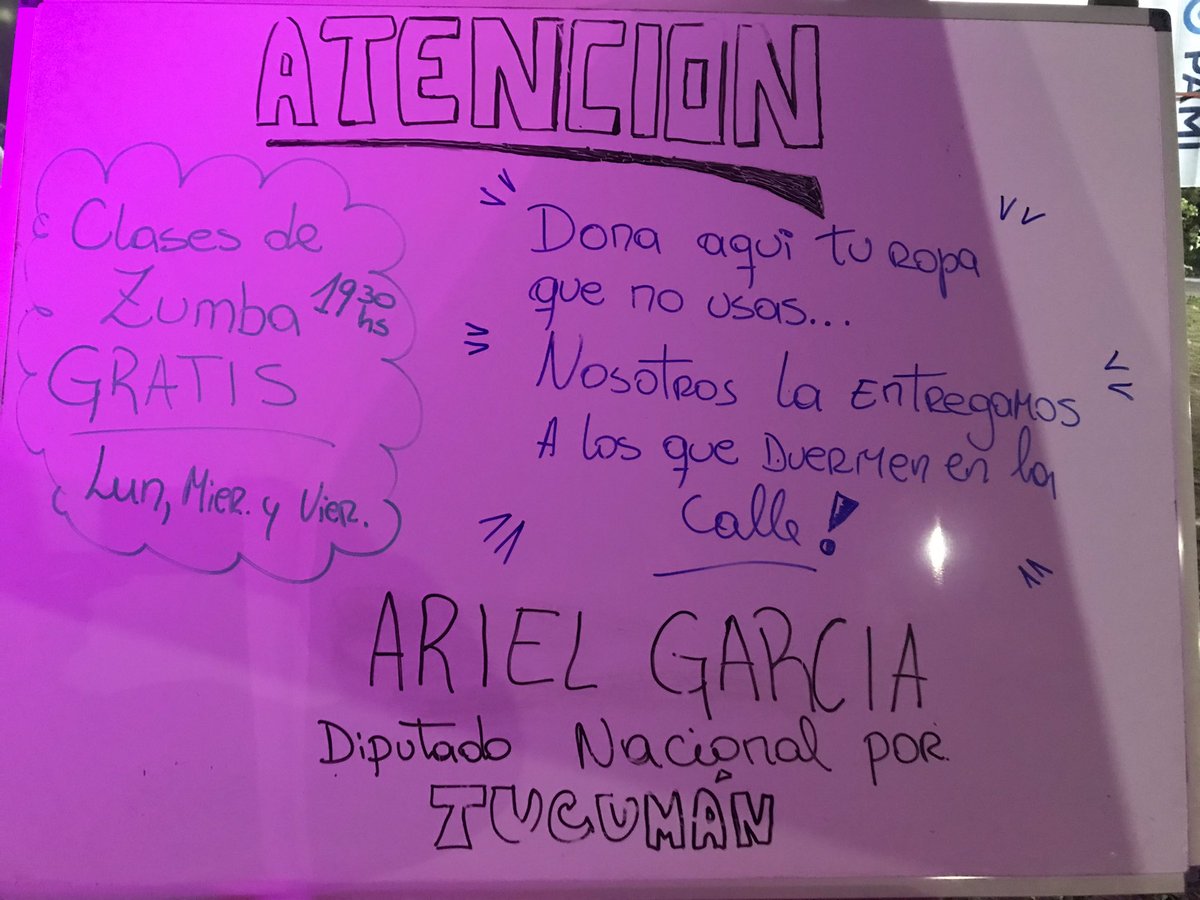 ATENCION
Clases de
Zumba 19 30 hs
GRATIS
Lun, Mier. y Vier.
Dona aqui tu ropa
que no usas...
Nosotros la entregamos
A los que duermen en la
calle!
ARIEL GARCIA
Diputado Nacional por
TUCUMÁN
PAMI